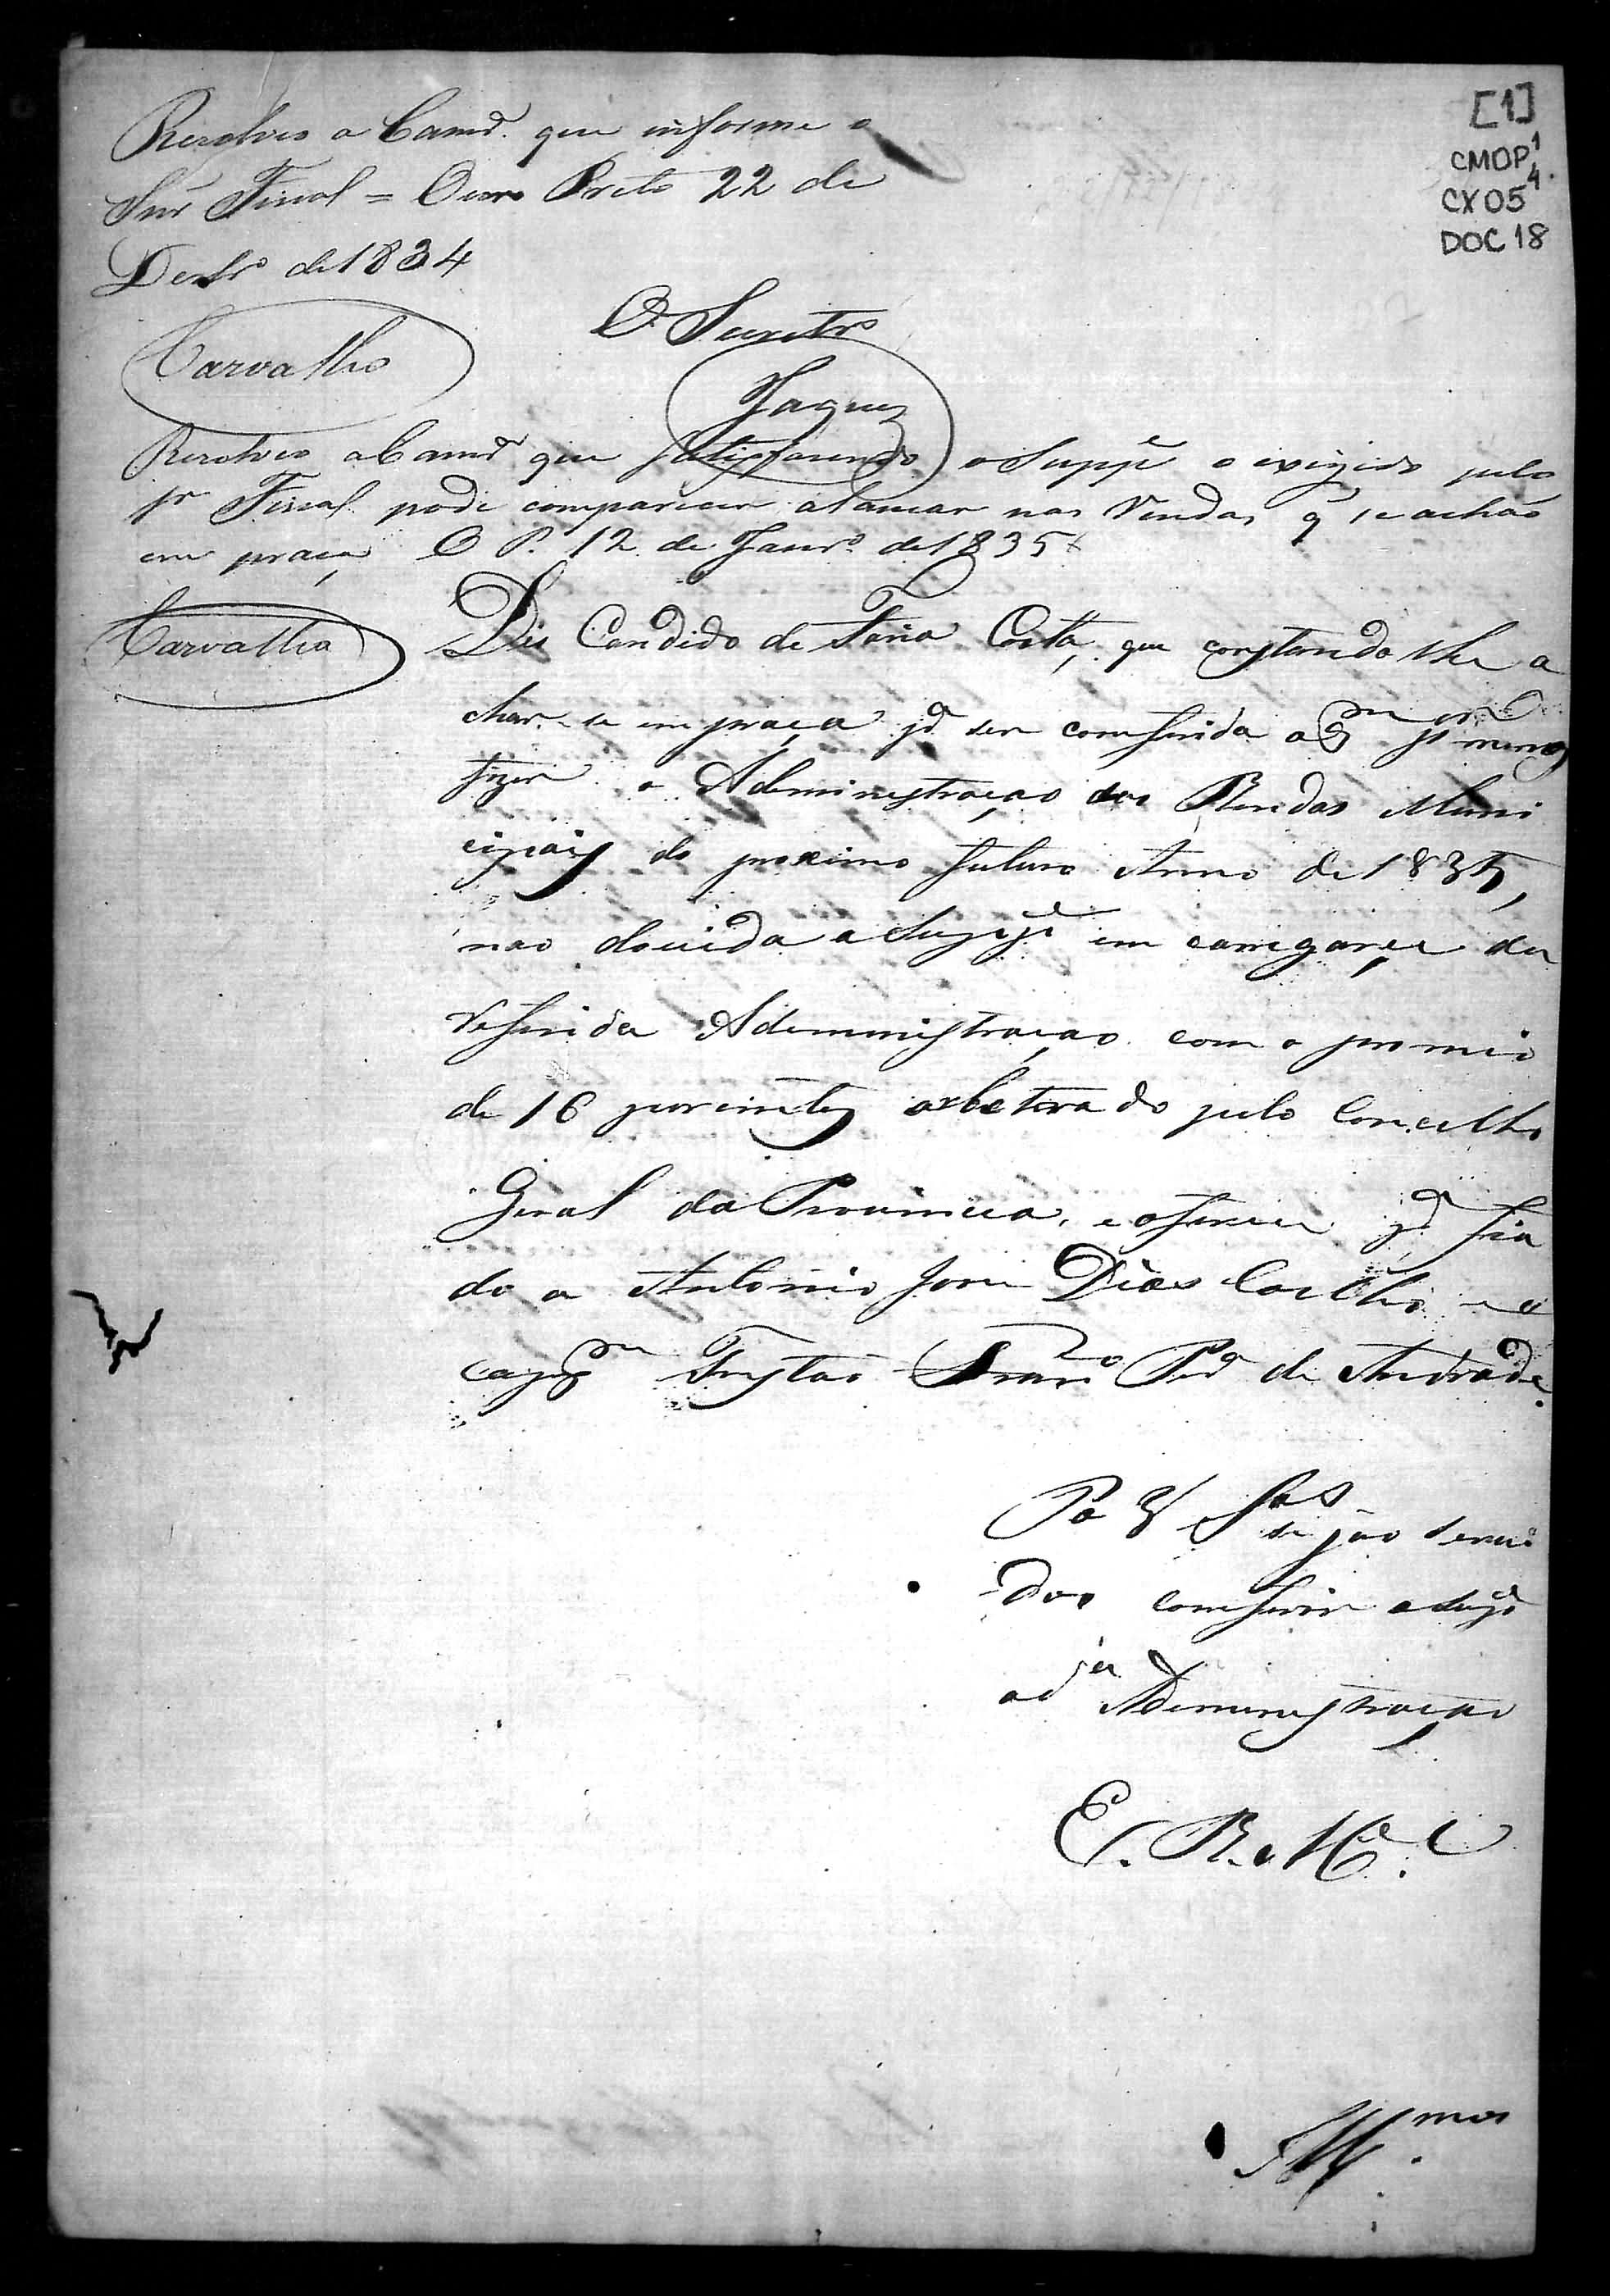 [1]
CMOP 1
4.
CX 05
DOC 18
Resolveo a Camr.ª que informe o
Snr Fiscal = Ouro Preto 22 de
Dezbr.º de 1834
O Secretr.º
Carvalho
Jaques
Resolveo a Camr.ª que satisfazendo o Supp.e o exigido pelo
Sr Fiscal pode comparecer a lançar nas Rendas q̃ se achão
em praça O P. 12 de Janr.º de 1835
Carvalho
Diz Candido de Faria Costa, que constando lhe a
char-se em praça p.ª ser comferida a q.m p.r menos
fizer a Administração das Rendas Muni
cipais do proximo futuro Anno de 1835,
nao duvida o Supp.e em carregarse da
referida Administraçao com o premio
de 16 porcentos arbetrado pelo Concelho
Geral da Provincia, e oferece p.ª fia
do a Antonio Jose Dias Coelho e o
cap.m Tristaõ Fran.co Per.ª de Andrade.
P a V S.as
sejao servi
dos comferir a Supp.e
a d.ª Administraçao
E. R. M.ce
Ill.mos